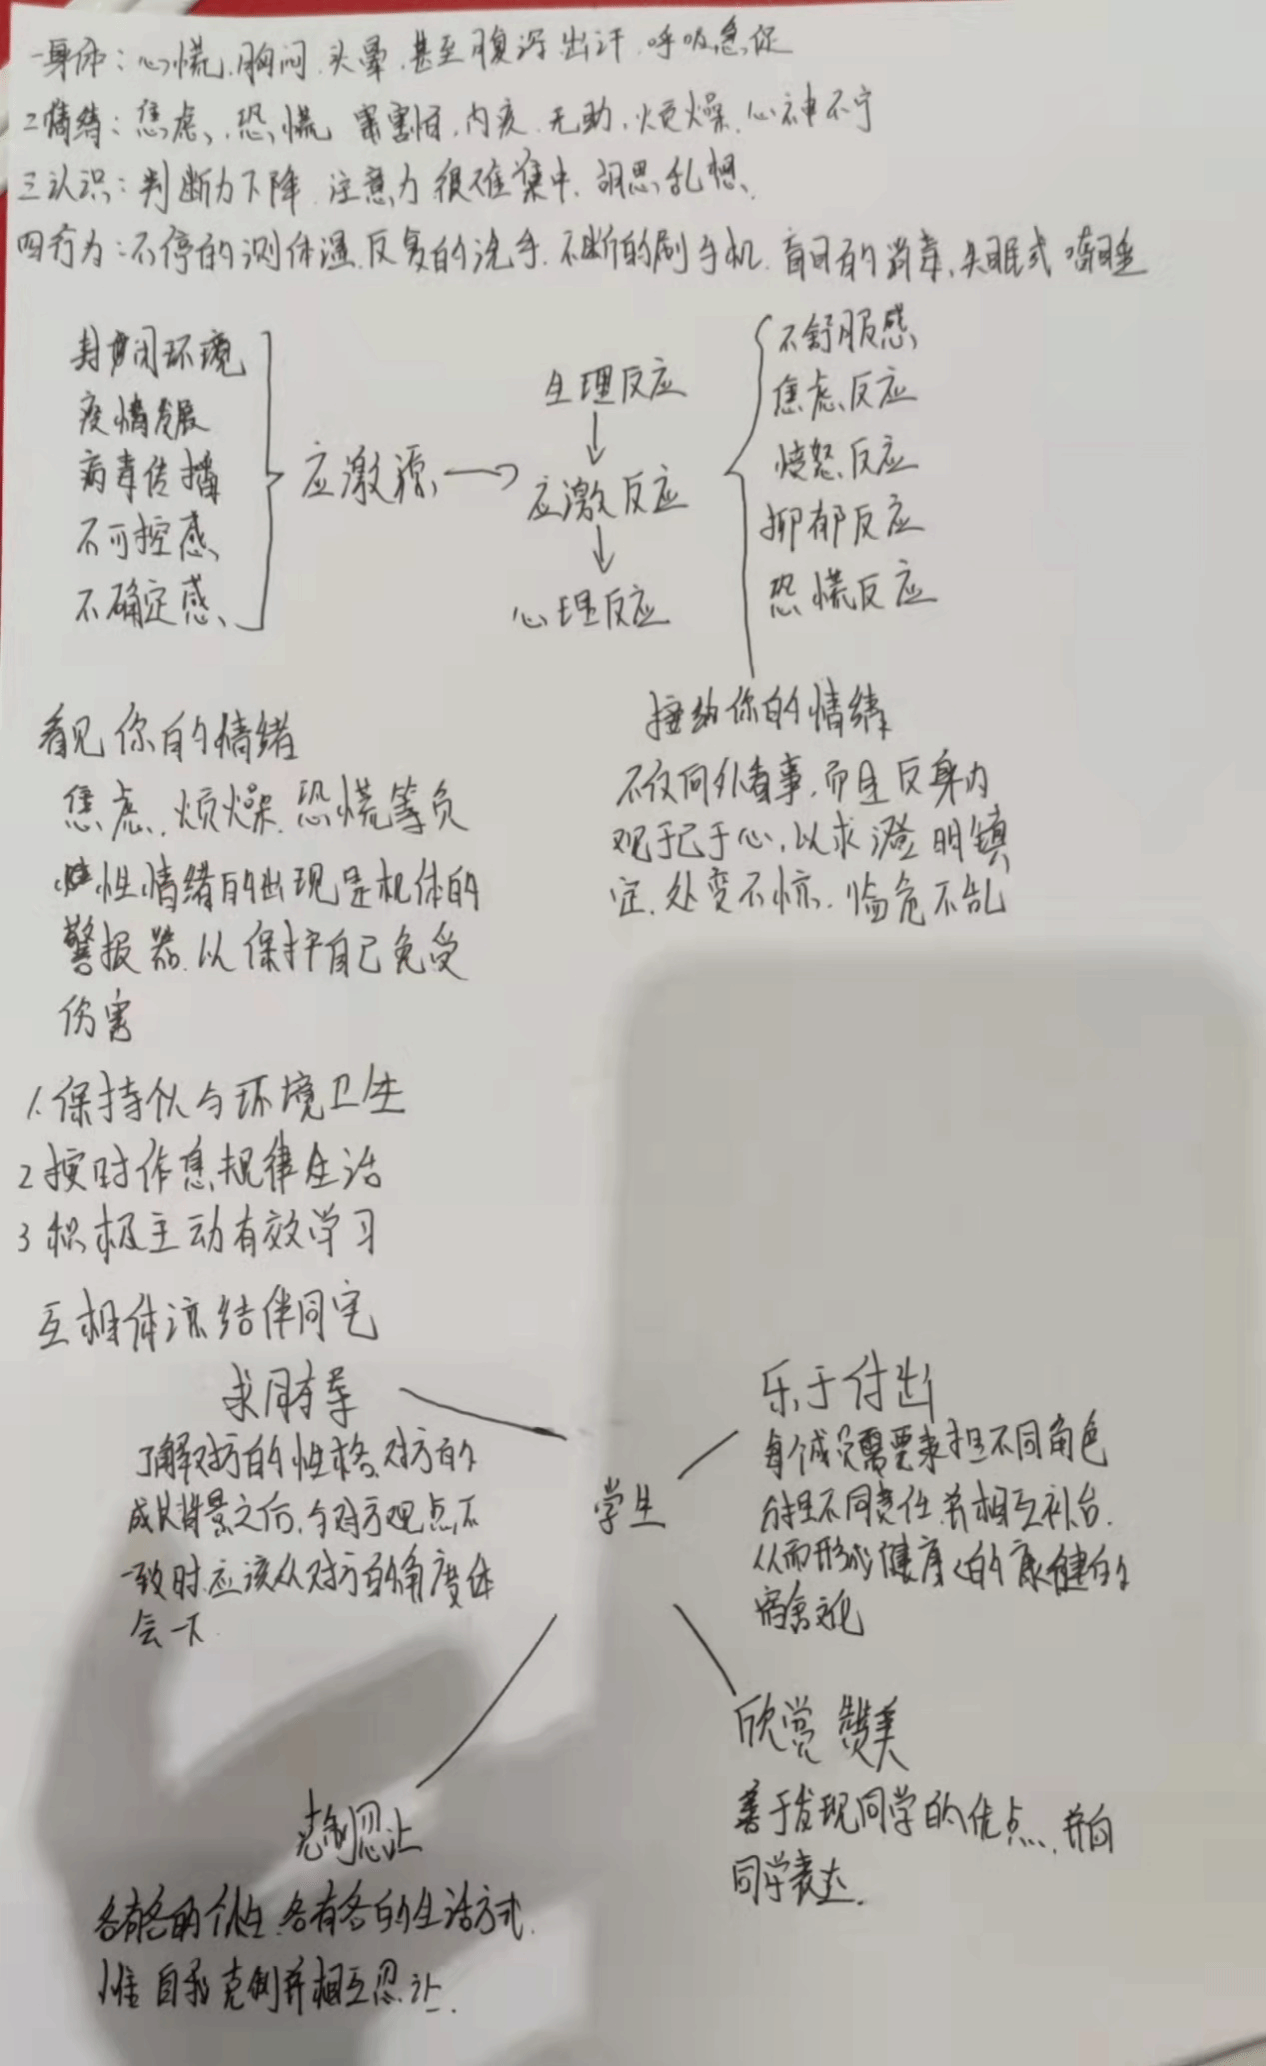 一身体：心慌、胸闷、头晕、甚至腹泻出汗、呼吸急促
二情绪：焦虑、恐慌 害怕、内疚、无助、烦燥、心神不宁
三认识：判断力下降、注意力很难集中、胡思乱想、
四行为：不停的测体温、反复的洗手、不断的刷手机、盲目的消毒、失眠或嗜睡
封闭环境
疫情发展
病毒传播
不可控感
不确定感
应激源
生理反应
应激反应
心理反应
不舒服感
焦虑反应
愤怒反应
抑郁反应
恐慌反应
看见你的情绪
焦虑、烦燥、恐慌等负
性情绪的出现是机体的
警报器、以保护自己免受
伤害
接纳你的情绪
不仅向外看事、而且反身内
观于己于心、以求澄明镇
定、处变不惊、临危不乱
1.保持个人与环境卫生
2 按时作息规律生活
3 积极主动有效学习
互相体谅结伴同宅
求同存异
了解对方的性格、对方的
成长背景之后、与对方观点不
一致时、应该从对方的角度体
会一下
学生
乐于付出
每个成员需要承担不同角色
分担不同责任、并相互补台、
从而形成健康的
宿舍文化
欣赏 赞美
善于发现同学的优点、并向
同学表达、
克制忍让
各有各的个性、各有各的生活方式、
惟自我克制并相互忍让、